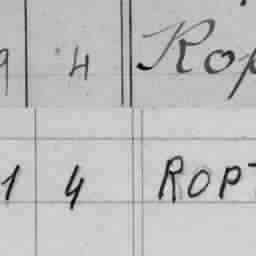 9 4 Rop
1 4 ROPT